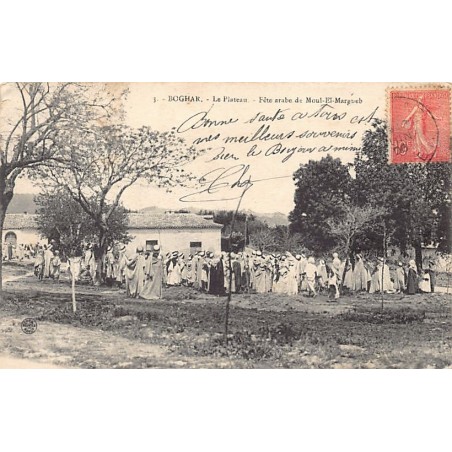 3. - BOGHAR. - Le Plateau. - Fête arabe de Moul-El-Margueb
Bonne santé a tous est
mes meilleurs souvenirs
bien le Bonjour a mimi